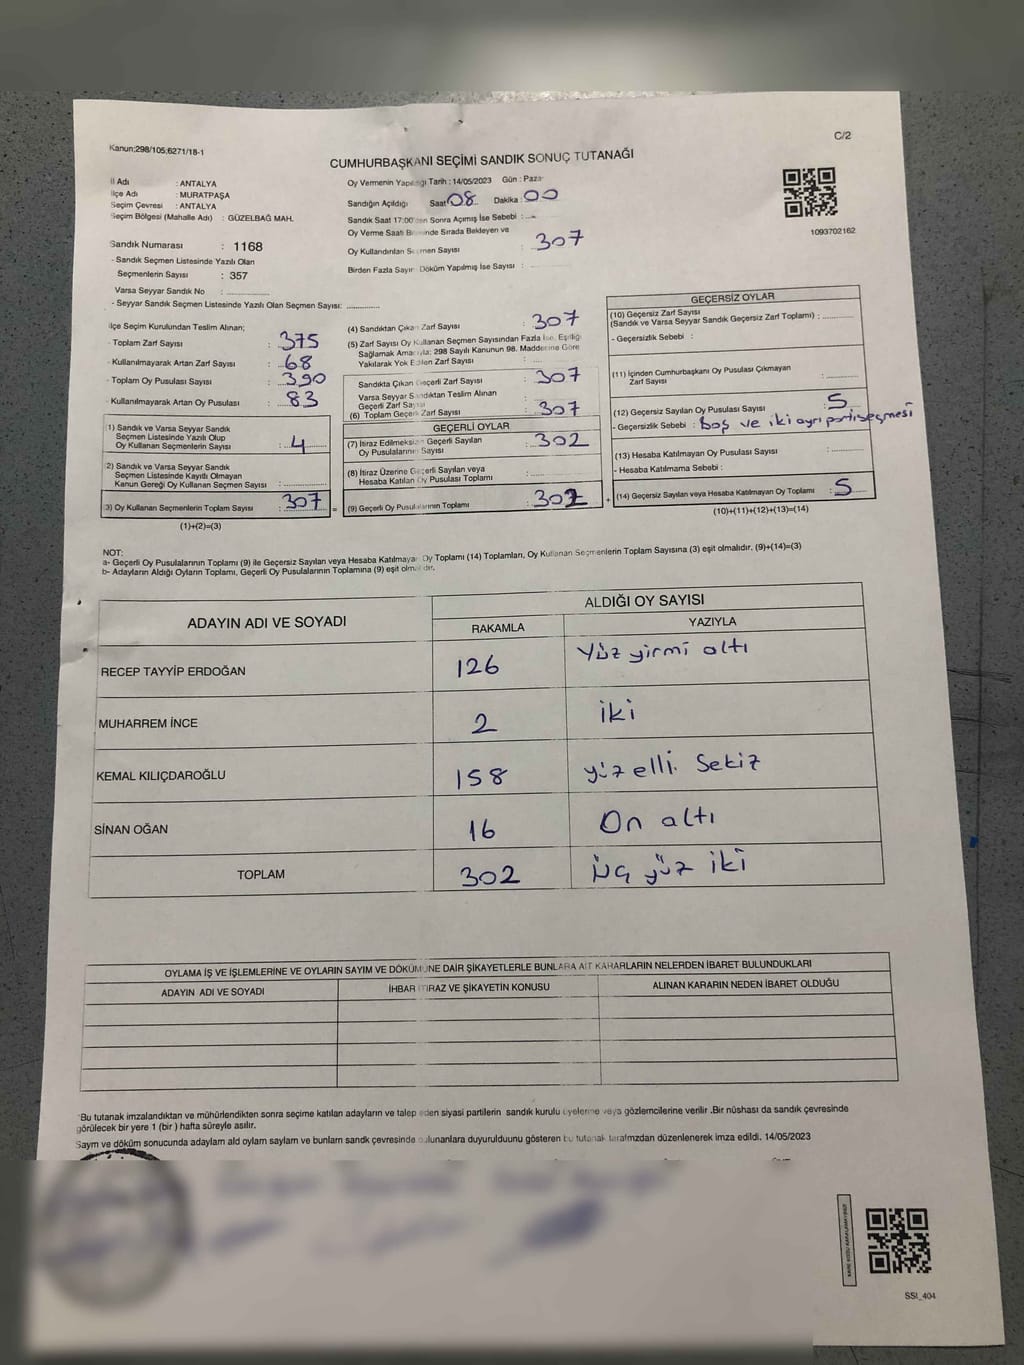 C/2
Kanun:298/105;6271/18-1
CUMHURBAŞKANI SEÇİMİ SANDIK SONUÇ TUTANAĞI
İl Adı : ANTALYA
İlçe Adı : MURATPAŞA
Seçim Çevresi : ANTALYA
Seçim Bölgesi (Mahalle Adı) : GÜZELBAĞ MAH.
Sandık Numarası : 1168
- Sandık Seçmen Listesinde Yazılı Olan
Seçmenlerin Sayısı : 357
Varsa Seyyar Sandık No : ..............
- Seyyar Sandık Seçmen Listesinde Yazılı Olan Seçmen Sayısı: ............
Oy Vermenin Yapıldığı Tarih : 14/05/2023 Gün : Pazar
Sandığın Açıldığı Saat 08 Dakika : 00
Sandık Saat 17:00'den Sonra Açımış İse Sebebi : ...
Oy Verme Saati Bitiminde Sırada Bekleyen ve
Oy Kullandırılan Seçmen Sayısı : 307
Birden Fazla Sayım Döküm Yapılmış İse Sayısı : ............
1093702162
İlçe Seçim Kurulundan Teslim Alınan;
- Toplam Zarf Sayısı : 375
- Kullanılmayarak Artan Zarf Sayısı : 68
- Toplam Oy Pusulası Sayısı : 390
- Kullanılmayarak Artan Oy Pusulası : 83
1) Sandık ve Varsa Seyyar Sandık
Seçmen Listesinde Yazılı Olup
Oy Kullanan Seçmenlerin Sayısı : 4
2) Sandık ve Varsa Seyyar Sandık
Seçmen Listesinde Kayıtlı Olmayan
Kanun Gereği Oy Kullanan Seçmen Sayısı : ............
3) Oy Kullanan Seçmenlerin Toplam Sayısı : 307
(1)+(2)=(3)
(4) Sandıktan Çıkan Zarf Sayısı : 307
(5) Zarf Sayısı Oy Kullanan Seçmen Sayısından Fazla İse, Eşitliği
Sağlamak Amacıyla; 298 Sayılı Kanunun 98. Maddesine Göre
Yakılarak Yok Edilen Zarf Sayısı : ............
Sandıkta Çıkan Geçerli Zarf Sayısı : 307
Varsa Seyyar Sandıktan Teslim Alınan
Geçerli Zarf Sayısı
(6) Toplam Geçerli Zarf Sayısı : 307
GEÇERLİ OYLAR
(7) İtiraz Edilmeksizin Geçerli Sayılan
Oy Pusulalarının Sayısı : 302
(8) İtiraz Üzerine Geçerli Sayılan veya
Hesaba Katılan Oy Pusulası Toplamı : ............
(9) Geçerli Oy Pusulalarının Toplamı : 302
GEÇERSİZ OYLAR
(10) Geçersiz Zarf Sayısı
(Sandık ve Varsa Seyyar Sandık Geçersiz Zarf Toplamı) : ............
- Geçersizlik Sebebi :
(11) İçinden Cumhurbaşkanı Oy Pusulası Çıkmayan
Zarf Sayısı : ............
(12) Geçersiz Sayılan Oy Pusulası Sayısı : 5
- Geçersizlik Sebebi : Boş ve iki ayrı parti seçmesi
(13) Hesaba Katılmayan Oy Pusulası Sayısı : ............
- Hesaba Katılmama Sebebi :
(14) Geçersiz Sayılan veya Hesaba Katılmayan Oy Toplamı : 5
(10)+(11)+(12)+(13)=(14)
NOT:
a- Geçerli Oy Pusulalarının Toplamı (9) ile Geçersiz Sayılan veya Hesaba Katılmayan Oy Toplamı (14) Toplamları, Oy Kullanan Seçmenlerin Toplam Sayısına (3) eşit olmalıdır. (9)+(14)=(3)
b- Adayların Aldığı Oyların Toplamı, Geçerli Oy Pusulalarının Toplamına (9) eşit olmalıdır.
ADAYIN ADI VE SOYADI ALDIĞI OY SAYISI
RAKAMLA YAZIYLA
RECEP TAYYİP ERDOĞAN 126 Yüz yirmi altı
MUHARREM İNCE 2 iki
KEMAL KILIÇDAROĞLU 158 yüz elli Sekiz
SİNAN OĞAN 16 On altı
TOPLAM 302 üç yüz iki
OYLAMA İŞ VE İŞLEMLERİNE VE OYLARIN SAYIM VE DÖKÜMÜNE DAİR ŞİKAYETLERLE BUNLARA AİT KARARLARIN NELERDEN İBARET BULUNDUKLARI
ADAYIN ADI VE SOYADI İHBAR İTİRAZ VE ŞİKAYETİN KONUSU ALINAN KARARIN NEDEN İBARET OLDUĞU
Bu tutanak imzalandıktan ve mühürlendikten sonra seçime katılan adayların ve talep eden siyasi partilerin sandık kurulu üyelerine veya gözlemcilerine verilir .Bir nüshası da sandık çevresinde
görülecek bir yere 1 (bir ) hafta süreyle asılır.
Sayım ve döküm sonucunda adaylam ald oylam saylam ve bunlam sandk çevresinde bulunanlara duyurulduunu gösteren bu tutanak tarafmzdan düzenlenerek imza edildi. 14/05/2023
SSI_404